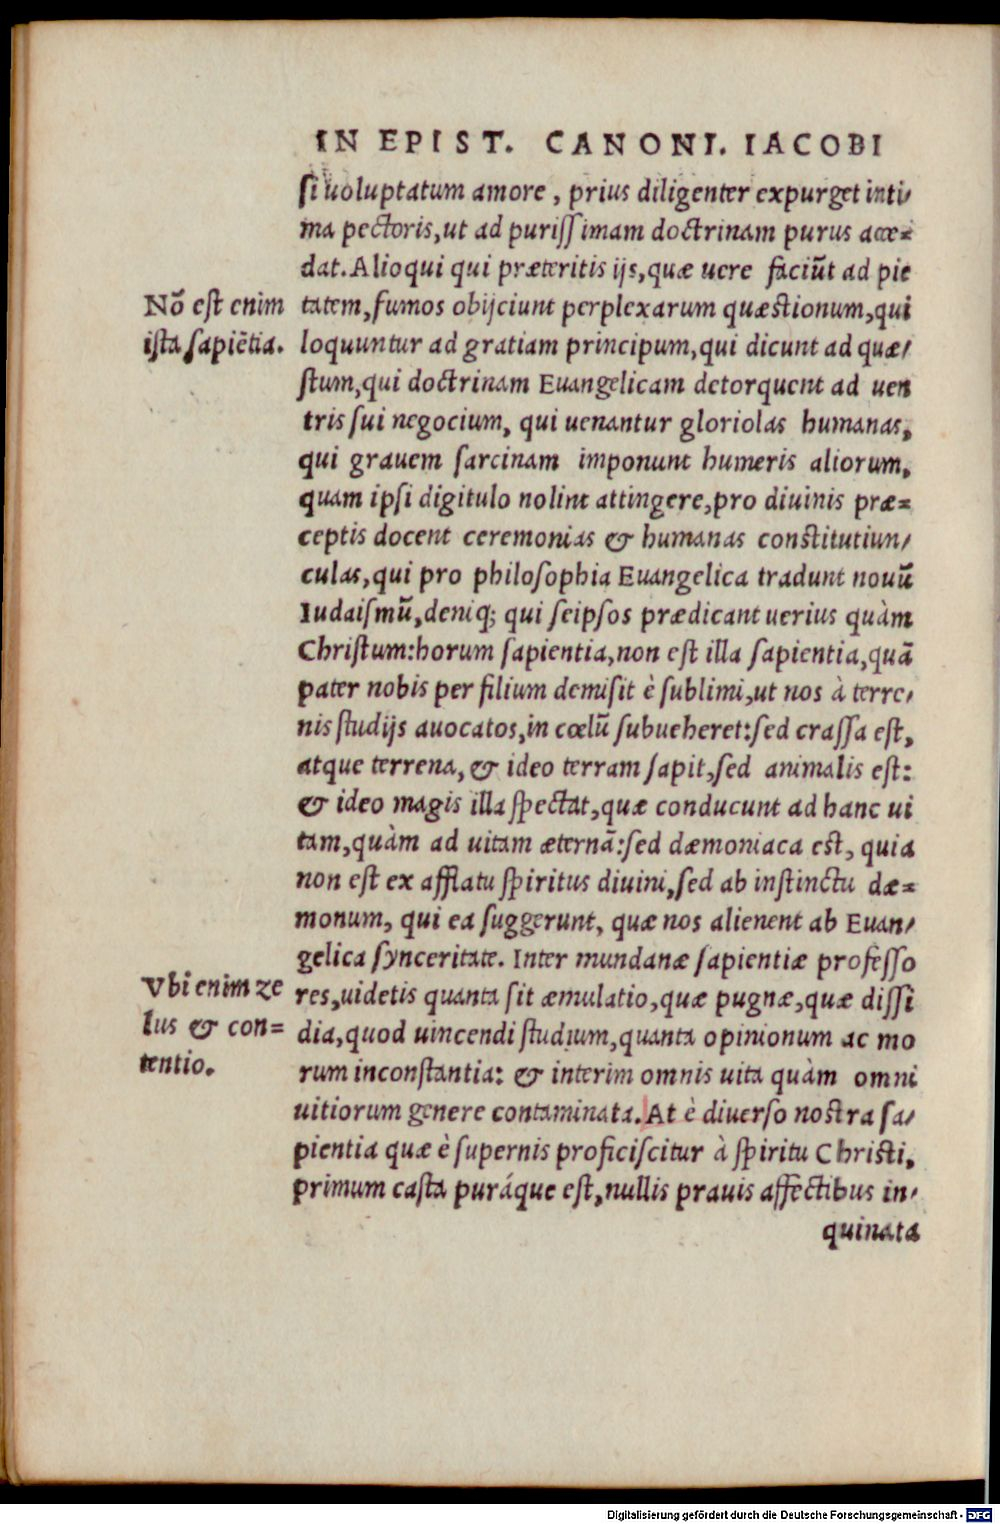 IN EPIST. CANONI. IACOBI
si uoluptatum amore, prius diligenter expurget inti/
ma pectoris, ut ad purissimam doctrinam purus acce=
dat. Alioqui qui præteritis ijs, quæ uere faciūt ad pie
Nō est enim
ista sapiētia.
tatem, fumos obijciunt perplexarum quæstionum, qui
loquuntur ad gratiam principum, qui dicunt ad quæ/
stum, qui doctrinam Euangelicam detorquent ad uen
tris sui negocium, qui uenantur gloriolas humanas,
qui grauem sarcinam imponunt humeris aliorum,
quam ipsi digitulo nolint attingere, pro diuinis præ=
ceptis docent ceremonias & humanas constitutiun/
culas, qui pro philosophia Euangelica tradunt nouū
Iudaismū, deniq; qui seipsos prædicant uerius quàm
Christum: horum sapientia, non est illa sapientia, quā
pater nobis per filium demisit è sublimi, ut nos à terre/
nis studijs auocatos, in cœlū subueheret: sed crassa est,
atque terrena, & ideo terram sapit, sed animalis est:
& ideo magis illa spectat, quæ conducunt ad hanc ui
tam, quàm ad uitam æternā: sed dæmoniaca est, quia
non est ex afflatu spiritus diuini, sed ab instinctu dæ=
monum, qui ea suggerunt, quæ nos alienent ab Euan/
gelica synceritate. Inter mundanæ sapientiæ professo
Vbi enim ze
lus & con=
tentio.
res, uidetis quanta sit æmulatio, quæ pugnæ, quæ dissi
dia, quod uincendi studium, quanta opinionum ac mo
rum inconstantia: & interim omnis uita quàm omni
uitiorum genere contaminata. At è diuerso nostra sa/
pientia quæ è supernis proficiscitur à spiritu Christi,
primum casta puráque est, nullis prauis affectibus in/
quinata
Digitalisierung gefördert durch die Deutsche Forschungsgemeinschaft - DFG